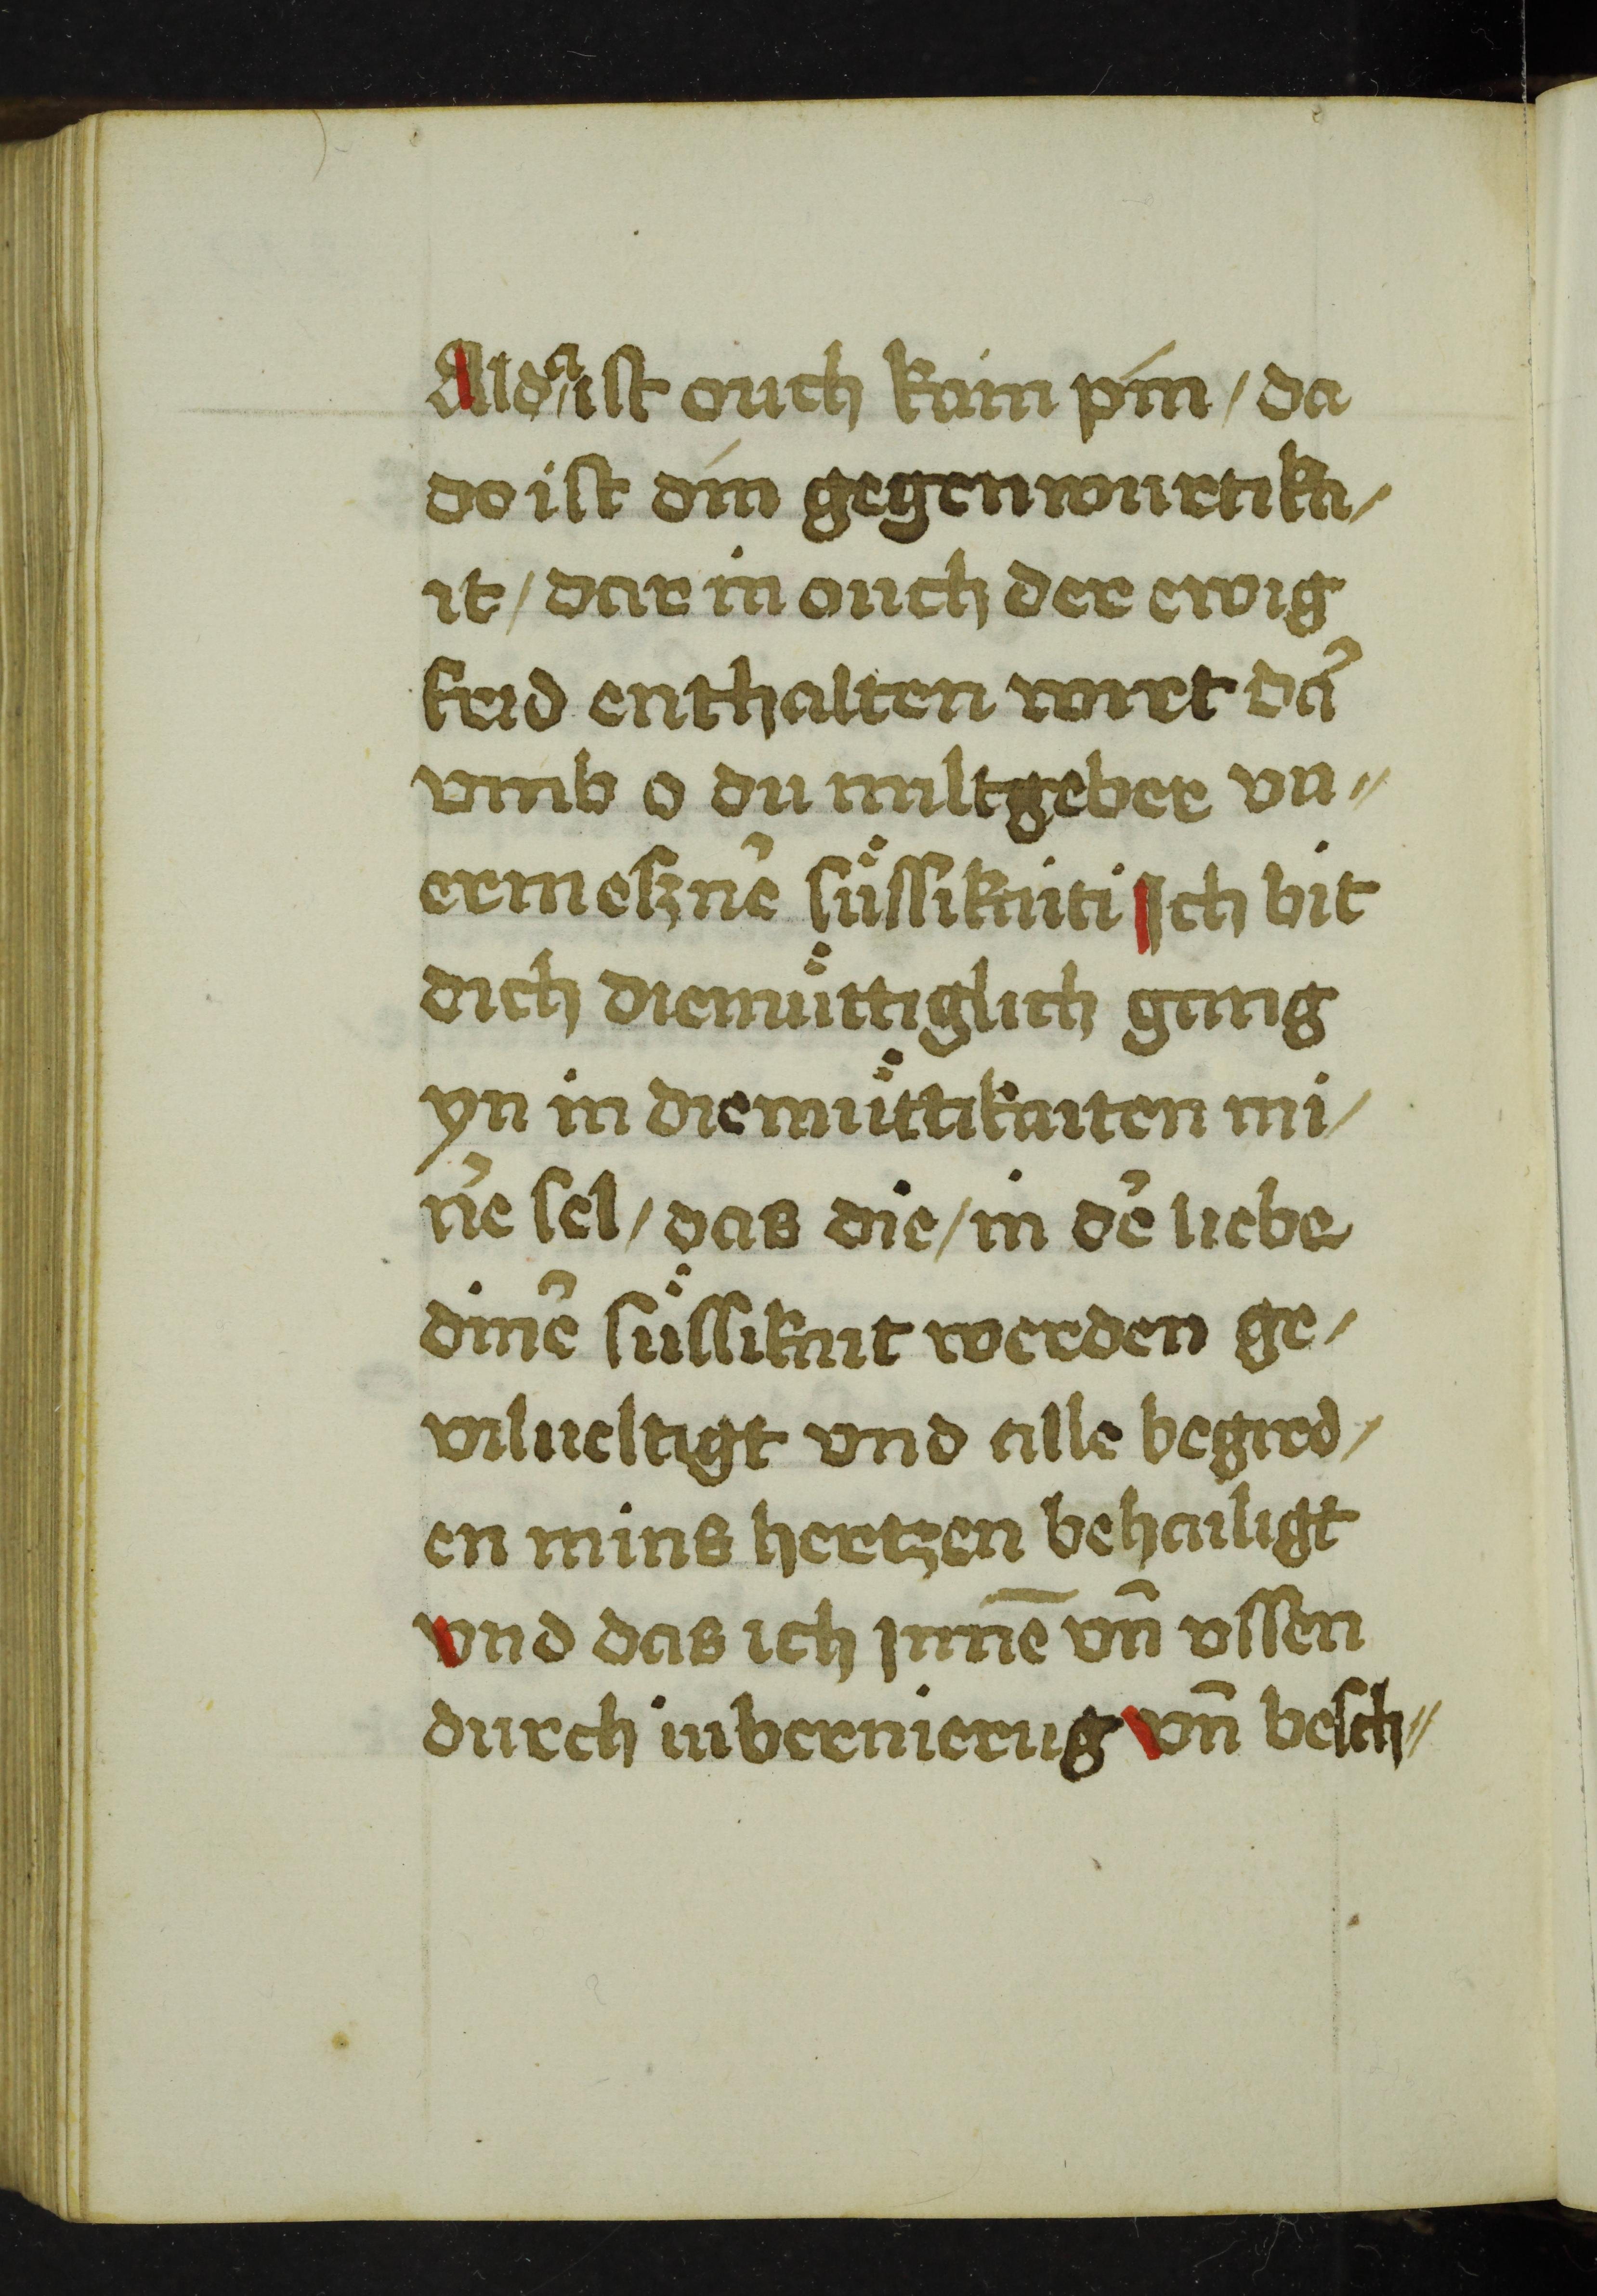 Aldaist ouch kain pín / da
do ist dín gegenwurtika /
it / dar in ouch der ewig
frid enthalten wirt da᷑
vmb o du miltgeber vn //
ermeszne᷑ suͤssikaiti Jch bit
dich diemuͤttiglich gang
yn in diemuͤttikaiten mi /
ne᷑ sel / das die / in de᷑ liebe
dine᷑ suͤssikait werden ge /
vilueltigt vnd alle begird /
en mins hertzen behailigt
vnd das ich jnnē vn̄ vssen
durch iubernierug vn̄ besch //